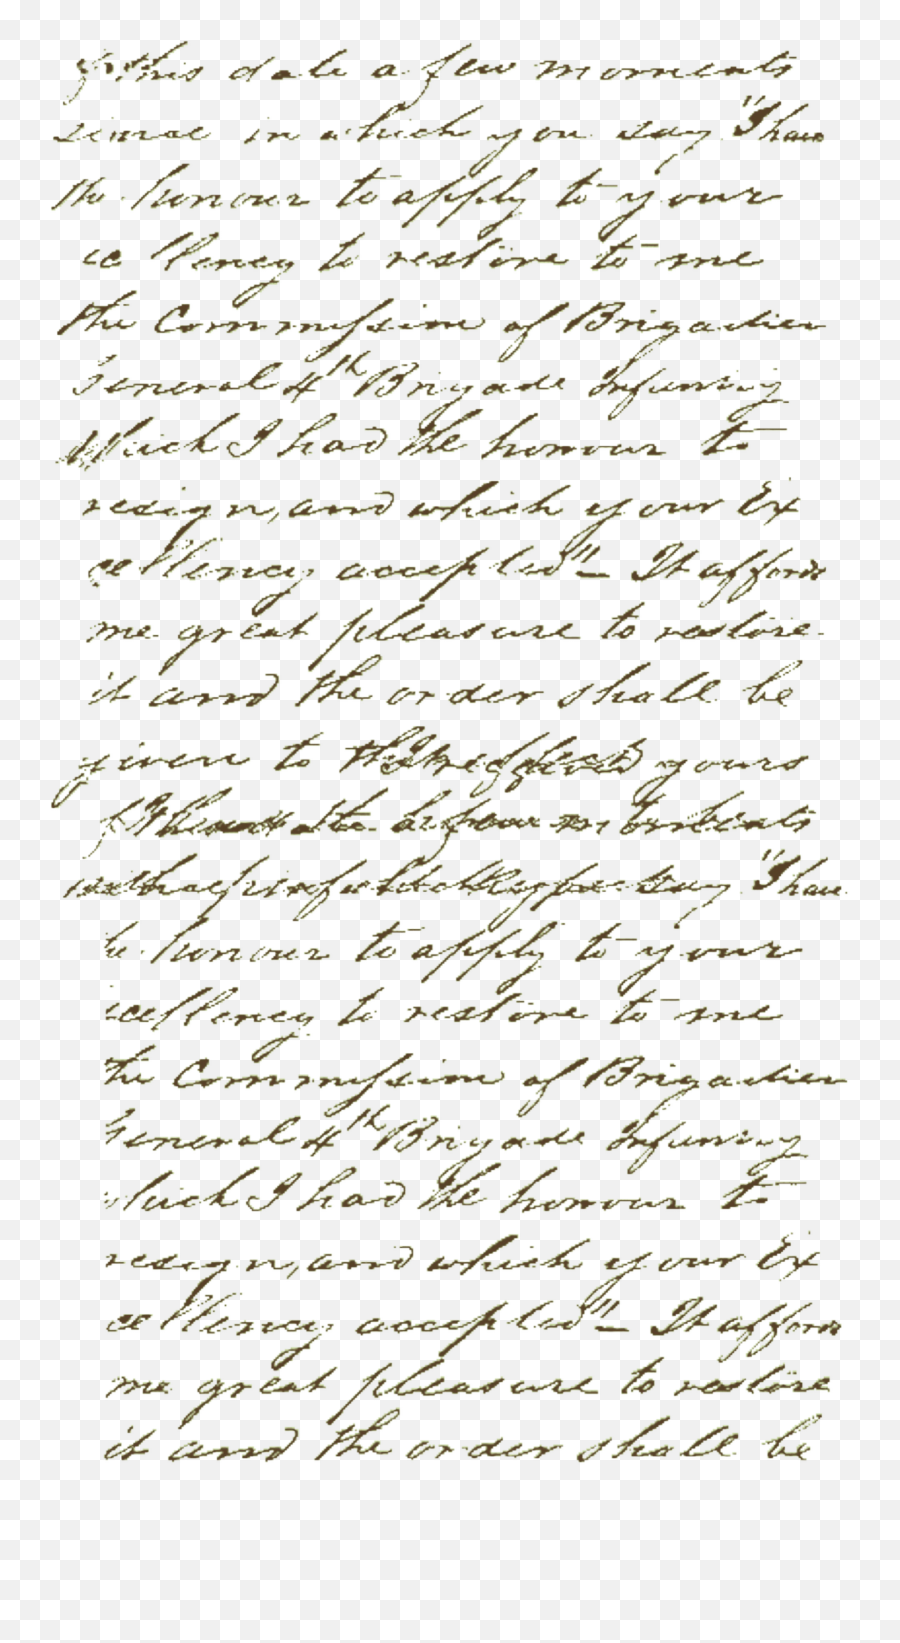 of this date a few moments
since in which you say "I have
the honour to apply to your
cellency to restore to me
the Commission of Brigadier
General 4th Brigade Infantry
which I had the honour to
resign, and which your Ex
cellency accepted" – It affords
me great pleasure to restore
it and the order shall be
given to yours
moments
say "I have
the honour to apply to your
xcellency to restore to me
the Commission of Brigadier
General 4th Brigade Infantry
which I had the honour to
resign, and which your Ex
cellency accepted" – It affords
me great pleasure to restore
it and the order shall be